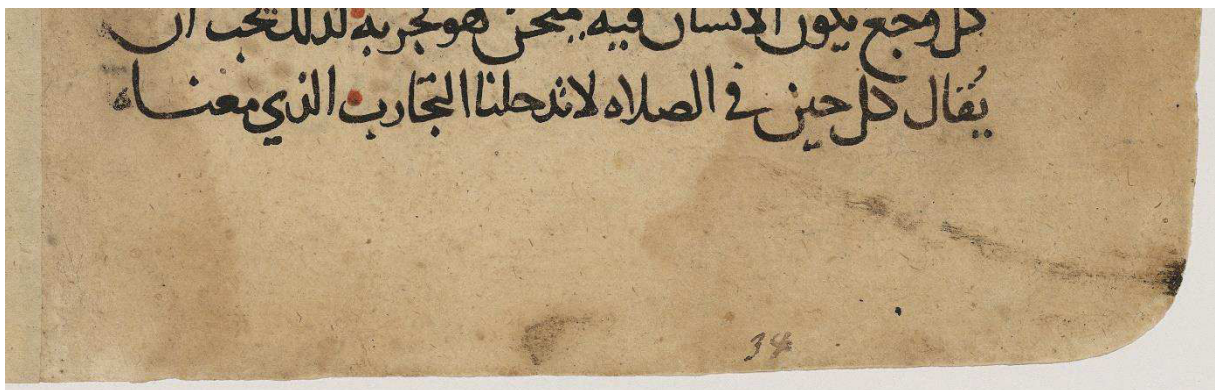 كل وجع يكون الانسان فيه يمتحن هو تجربه لذلك تجب ان
يُقال كل حين في الصلاه لا تدخلنا التجارب الذي معناه
34